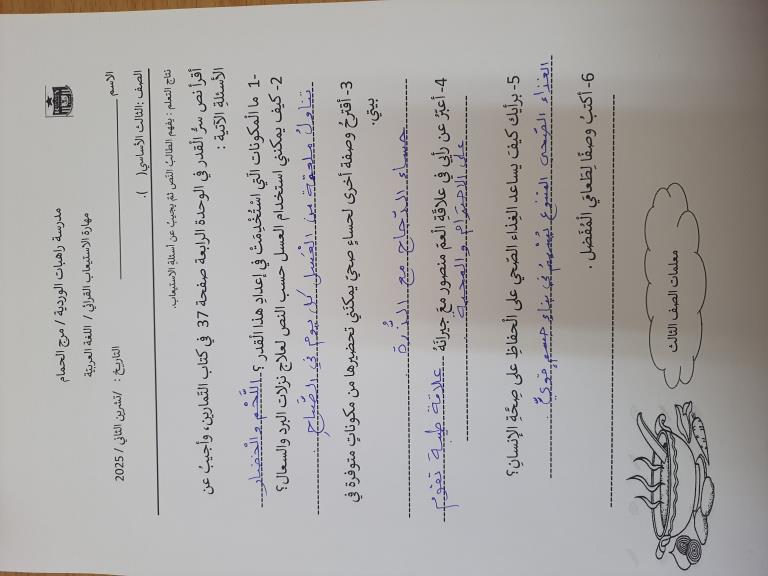 مدرسة راهبات الوردية / مرج الحمام
مهارة الاستيعاب القرائي / اللغة العربيّة
الاسم ____________ التاريخ : /تشرين الثاني / 2025
الصف :الثالث الأساسي( ).
نتاج التعلم : يفهم الطالبُ النّص ثم يجيبُ عن أسئلة الاستيعاب.
أقرأ نص سرُّ الْقدر في الوحدة الرابعة صفحة 37 في كتاب التّمارين، وأجيبُ عن
الأسئلةِ الآتية :
1- ما الْمكونات الّتي اسْتُخْدِمَتْ في إعدادِ هذا الْقدر ؟ اللَّحْم والْخضار
2- كيف يمكنني استخدام العسل حسب النص لعلاج نزلات البرد والسعال؟
تناولُ ملعقة من العْسَل كل يوم في الصَّباحِ.
3- أقترحُ وصفة أخرى لحساءٍ صحيّ يمكنني تحضيرها من مكوناتٍ متوفرة في
بيتي.
حساء الدّجاج مع الذُّرة
4- أعبّرُ عن رأيي في علاقة الْعمّ منصور معَ جيرانَهُ علاقة طيبة تقوم
على الاحترام والمحبة
5- برأيك كيفَ يساعد الغِذاء الصّحي على الْحفاظِ على صِحّةِ الإنسانِ؟
الغذاء الصّحي المتنوع يُسْهِمُ في بناء جسم قويٍّ
6- أكتبُ وصفًا لِطَعامي الْمُفَضل .
معلمات الصف الثالث